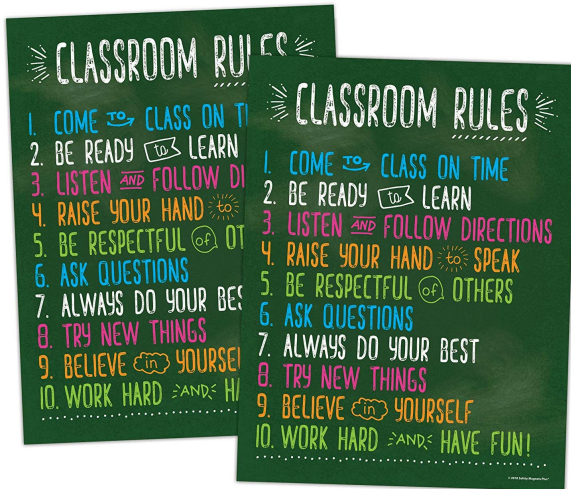 CLASSROOM RU
1. COME TO CLASS ON TI
2. BE READY to LEARN
3. LISTEN AND FOLLOW DI
4. RAISE YOUR HAND to
5. BE RESPECTFUL of OT
6. ASK QUESTIONS
7. ALWAYS DO YOUR BES
8. TRY NEW THINGS
9. BELIEVE in YOURSEL
10. WORK HARD AND HA
CLASSROOM RULES
1. COME TO CLASS ON TIME
2. BE READY to LEARN
3. LISTEN AND FOLLOW DIRECTIONS
4. RAISE YOUR HAND to SPEAK
5. BE RESPECTFUL of OTHERS
6. ASK QUESTIONS
7. ALWAYS DO YOUR BEST
8. TRY NEW THINGS
9. BELIEVE in YOURSELF
10. WORK HARD AND HAVE FUN!